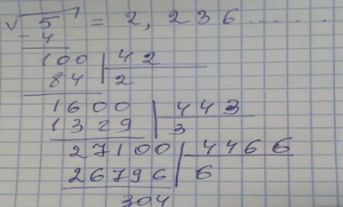 √5 = 2,236.......
- 4
100 | 42
84 | 2
1600 | 443
1329 | 3
27100 | 4466
26796 | 6
304